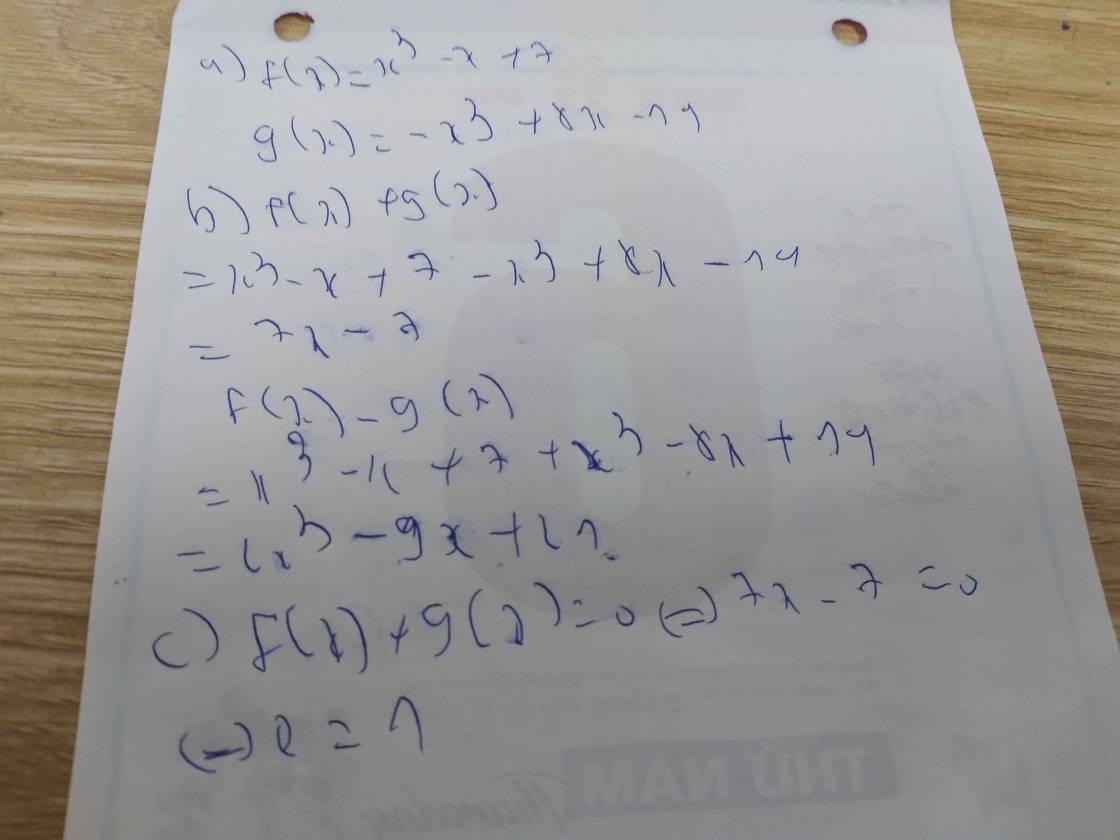 a) f(x) = x³ - x + 7
g(x) = -x³ + 8x - 14
b) f(x) + g(x)
= x³ - x + 7 - x³ + 8x - 14
= 7x - 7
f(x) - g(x)
= x³ - x + 7 + x³ - 8x + 14
= 2x³ - 9x + 21
c) f(x) + g(x) = 0 (=) 7x - 7 = 0
(=) x = 1
THỨ NĂM
Thursday